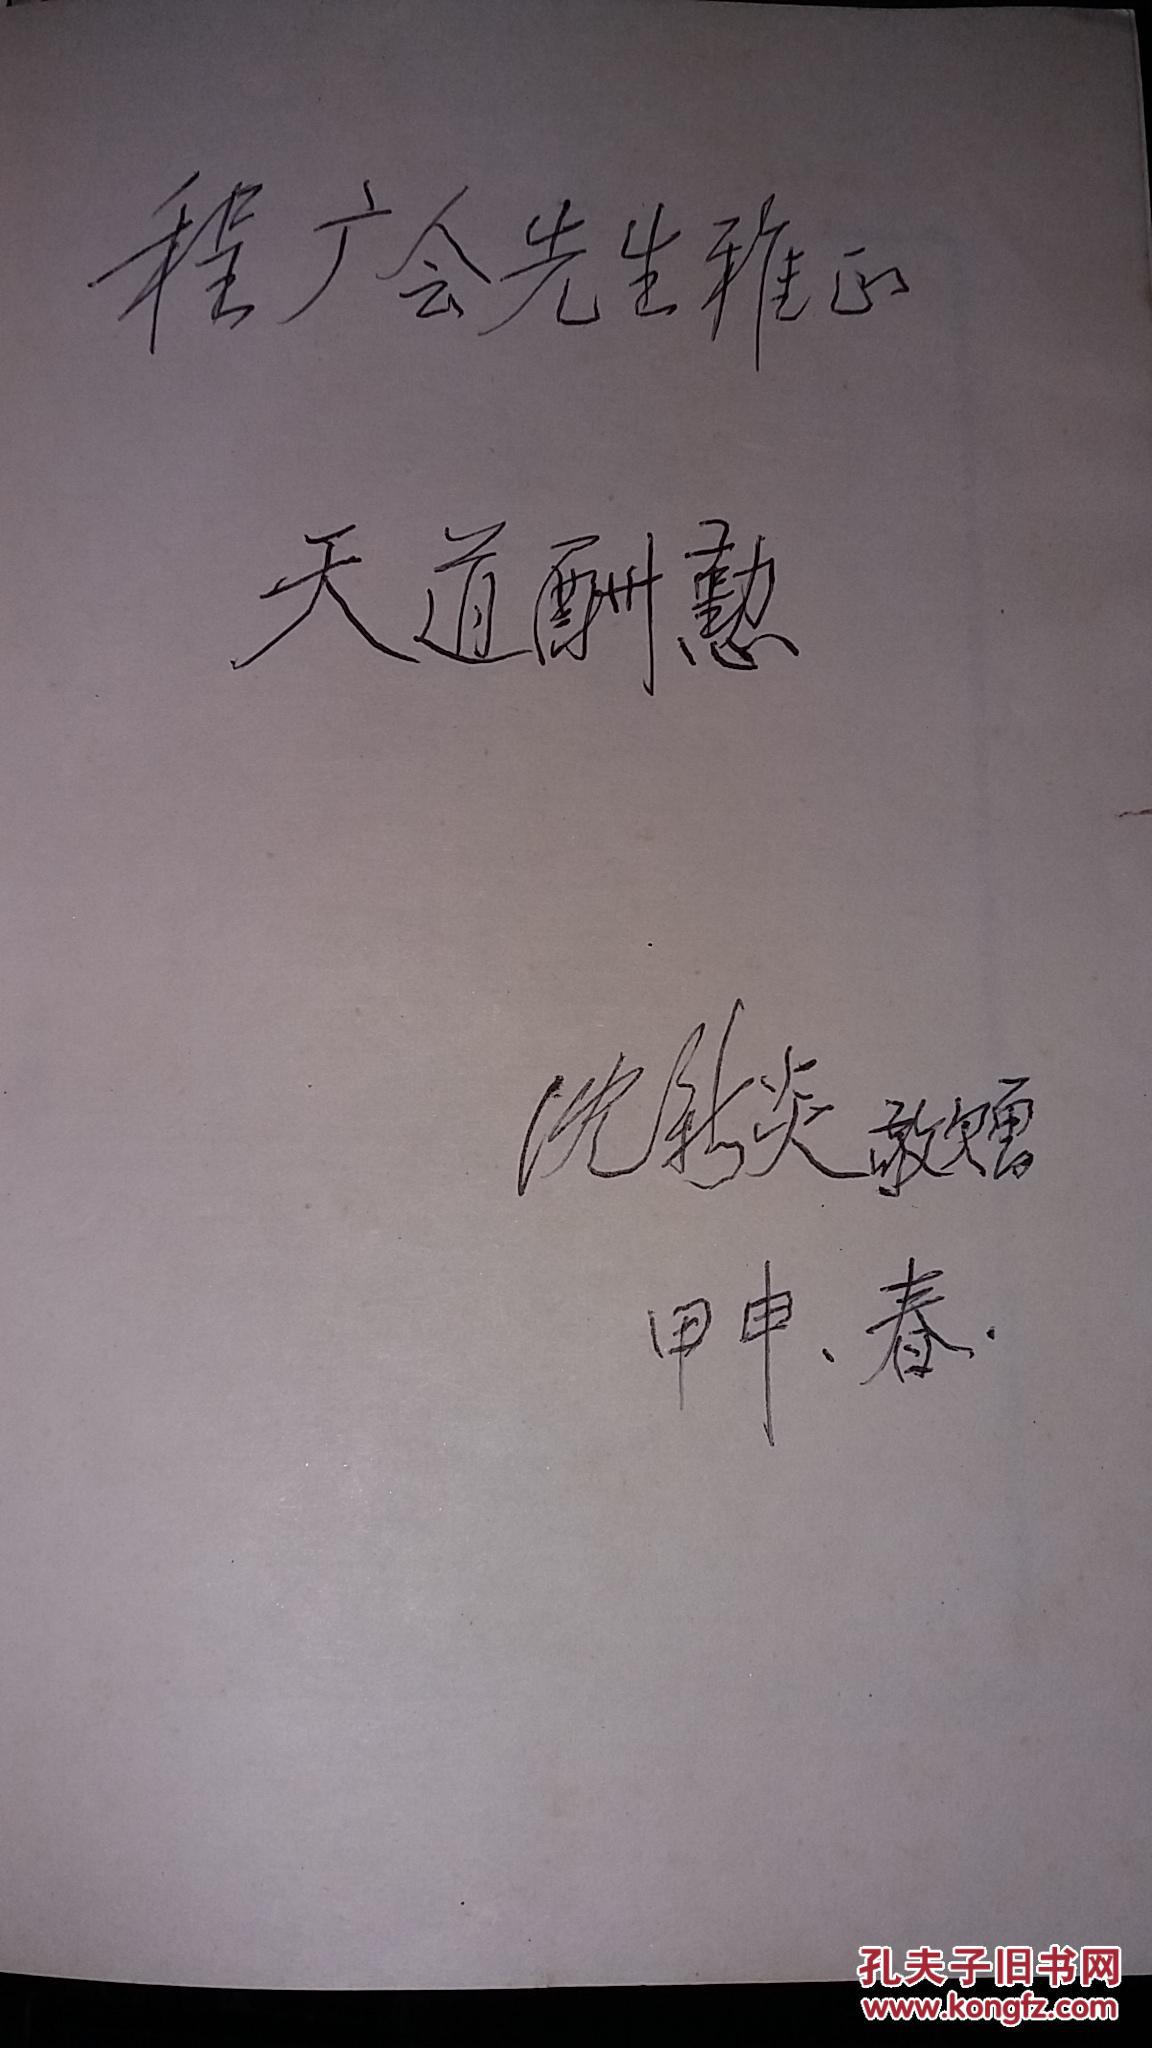 程广会先生雅正
天道酬懃
沈新炎敬赠
甲申、春.
孔夫子旧书网
www.kongfz.com